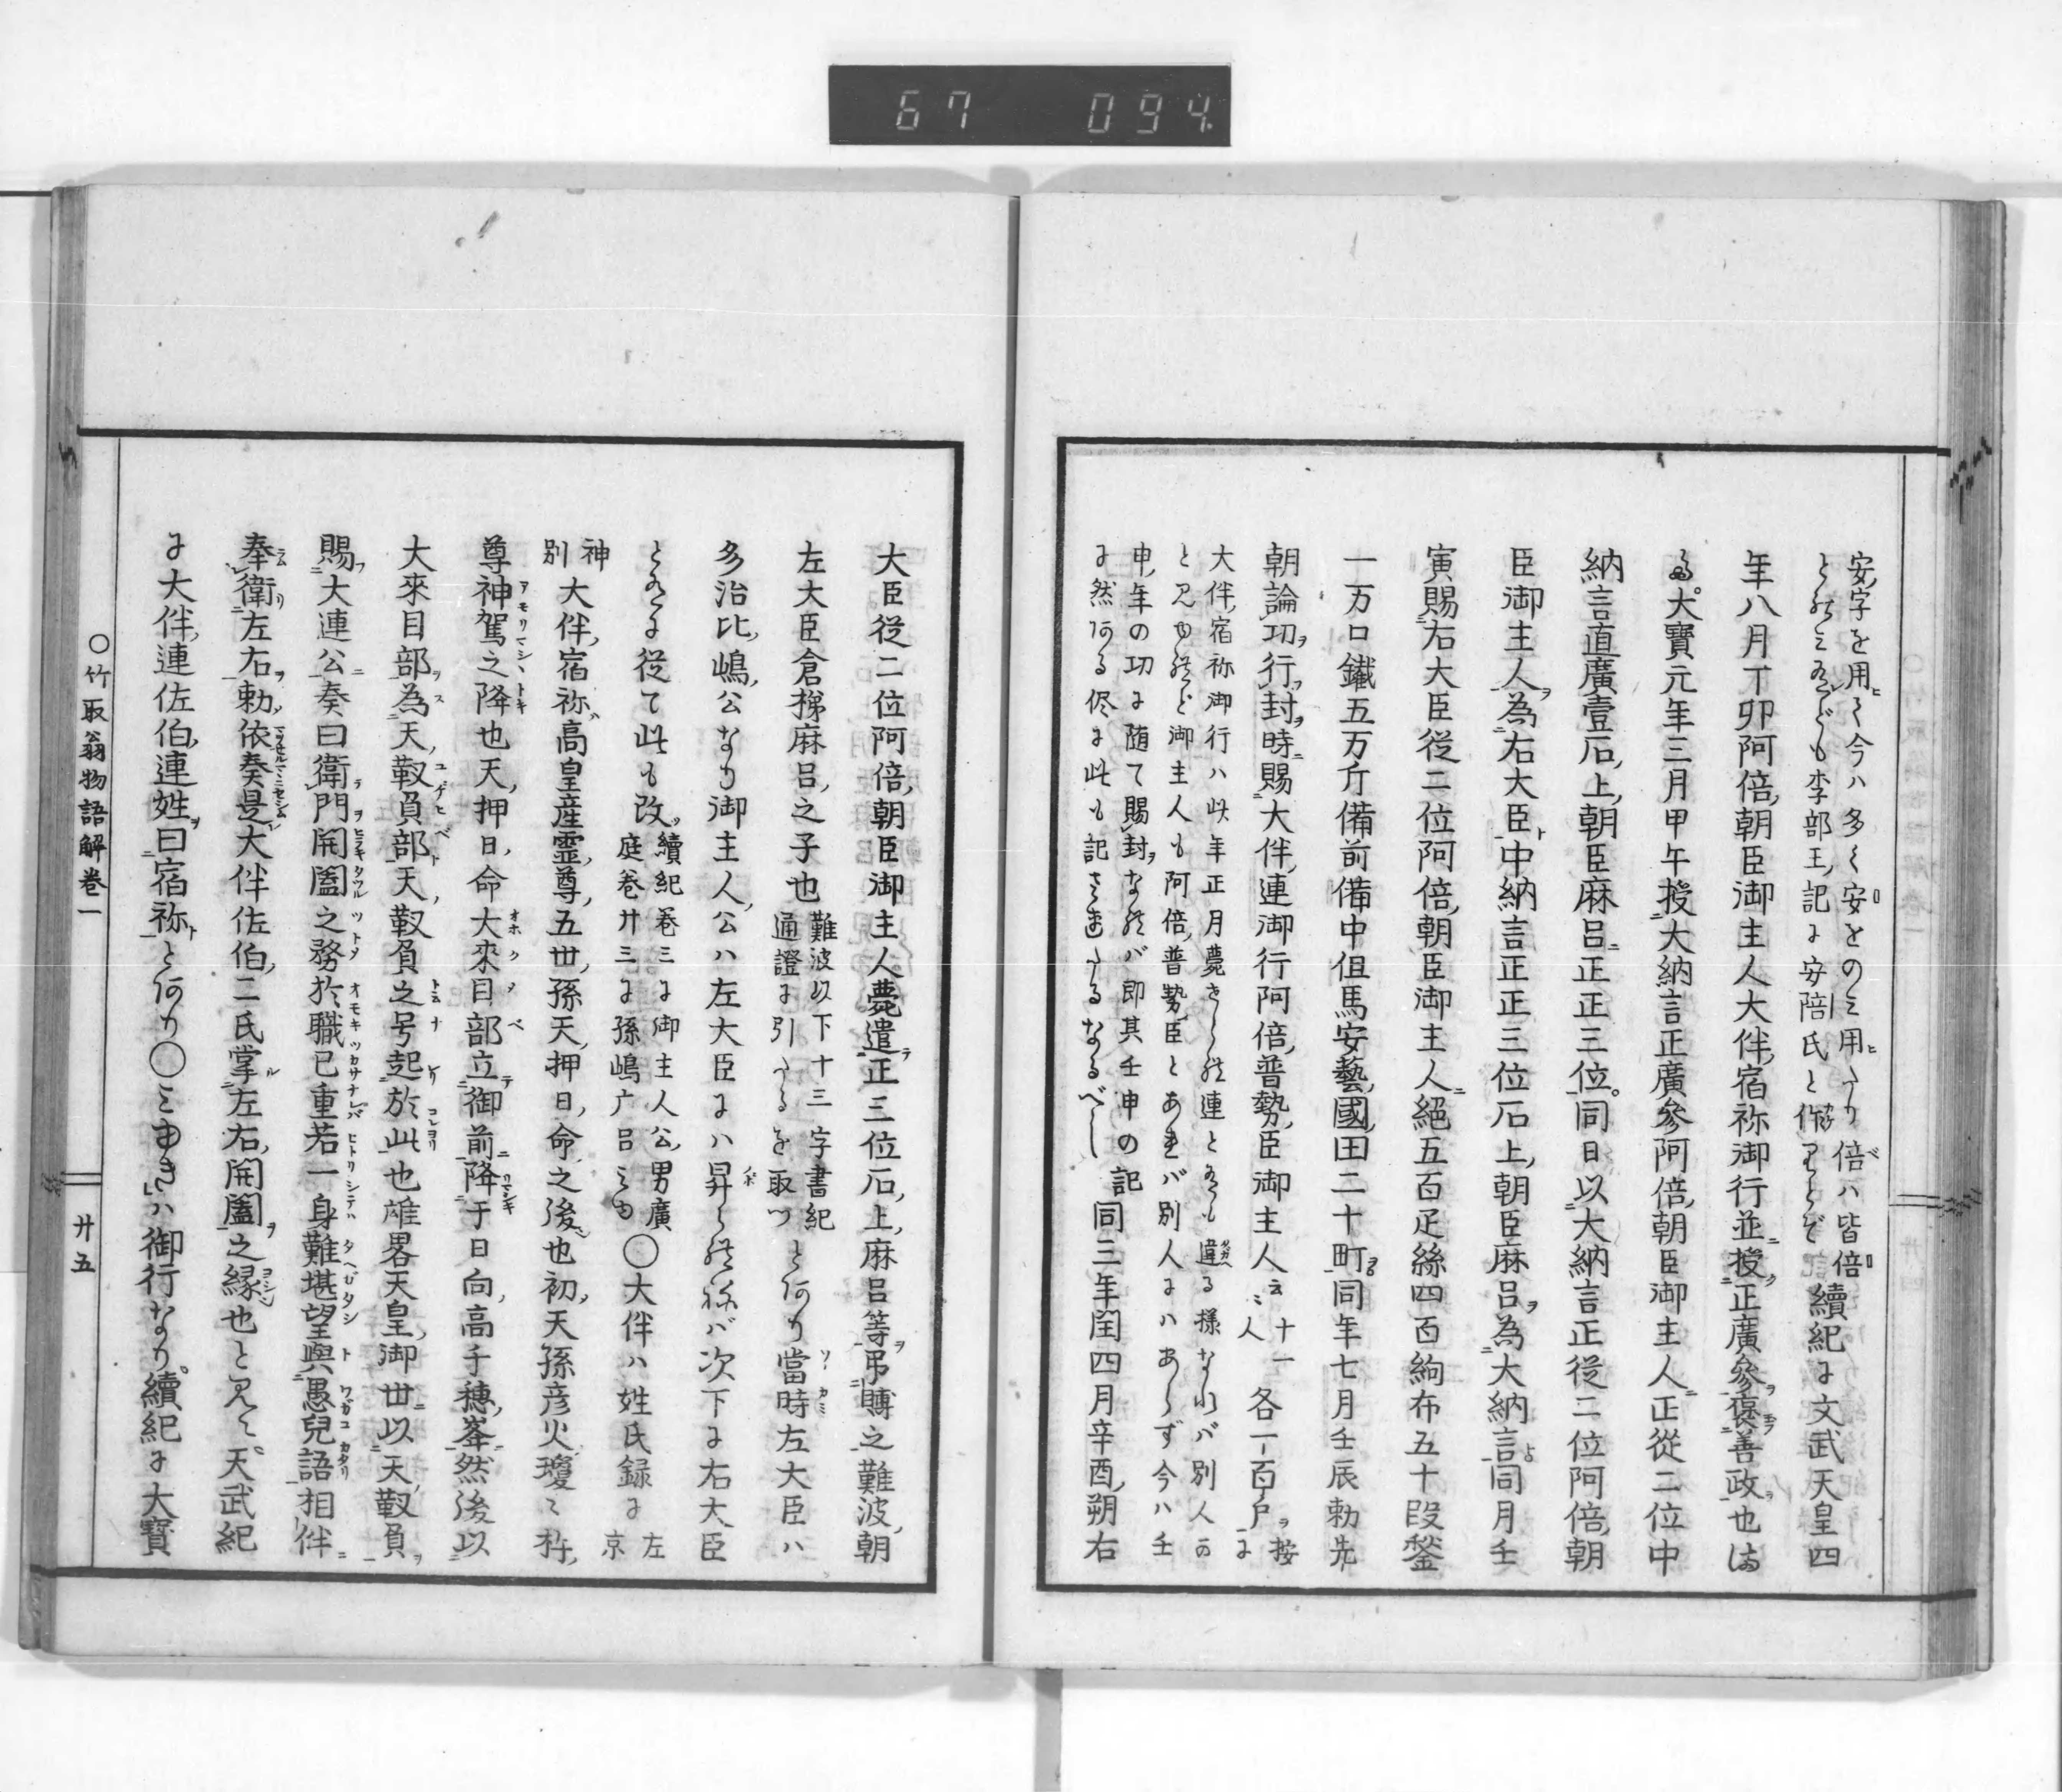 67 094.
安字を用て今ハ多く安とのミ用たり倍ハ皆倍
とのミあれども李部王記に安陪氏と作るもあれど
續紀に文武天皇四
年八月丁卯阿倍朝臣御主人大伴宿祢御行並授正廣參襃善政也ま
た大寶元年三月甲午授大納言正廣參阿倍朝臣御主人正從二位中
納言直廣壹石上朝臣麻呂正正三位同日以大納言正從二位阿倍朝
臣御主人為右大臣中納言正正三位石上朝臣麻呂為大納言同月壬
寅賜右大臣從二位阿倍朝臣御主人絁五百疋絲四百絇布五十段鍫
一万口鐵五万斤備前備中但馬安藝國田二十町同年七月壬辰勅先
朝論功行封時賜大伴連御行阿倍普勢臣御主人云々十一人各一百戸按に
大伴宿祢御行ハ此年正月薨された連とあるも違る様なれバ別人のか
と見ゆれど御主人も阿倍普勢臣とあれバ別人にハあらず今ハ壬
申年の功に随て賜封なれバ即其壬申の記
に然ある侭に此も記されたるなるべし
同三年閏四月辛酉朔右
大臣從二位阿倍朝臣御主人薨遣正三位石上麻呂等弔賻之難波朝
左大臣倉梯麻呂之子也難波以下十三字書紀
通證に引たるを取つ
とあり當時左大臣ハ
多治比嶋公なり御主人公ハ左大臣にハ昇られねバ次下に右大臣
とあるに從て此も改續紀巻三に御主人公男廣
庭巻廿三に孫嶋广呂ミゆ
〇大伴ハ姓氏録に左京
神別
大伴宿祢高皇産霊尊五世孫天押日命之後也初天孫彦火瓊々杵
尊神駕之降也天押日命大來目部立御前降于日向高千穗峯然後以
大來目部為天靫負部天靫負之号起於此也雄畧天皇御世以天靫負
賜大連公奏曰衛門開闔之務於職已重若一身難堪望與愚兒語相伴
奉衛左右勅依奏是大伴佐伯二氏掌左右開闔之縁也と見えて天武紀
に大伴連佐伯連姓曰宿祢とあり〇ミゆきハ御行なり續紀に大寶
〇竹取翁物語解巻一
廿五